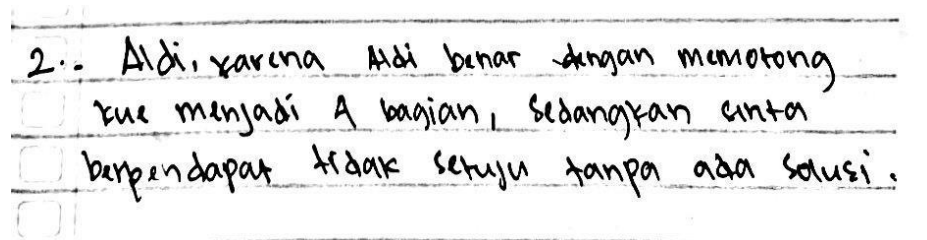 2.. Aldi, karena Aldi benar dengan memotong
kue menjadi 4 bagian, sedangkan cinta
berpendapat tidak setuju tanpa ada solusi.